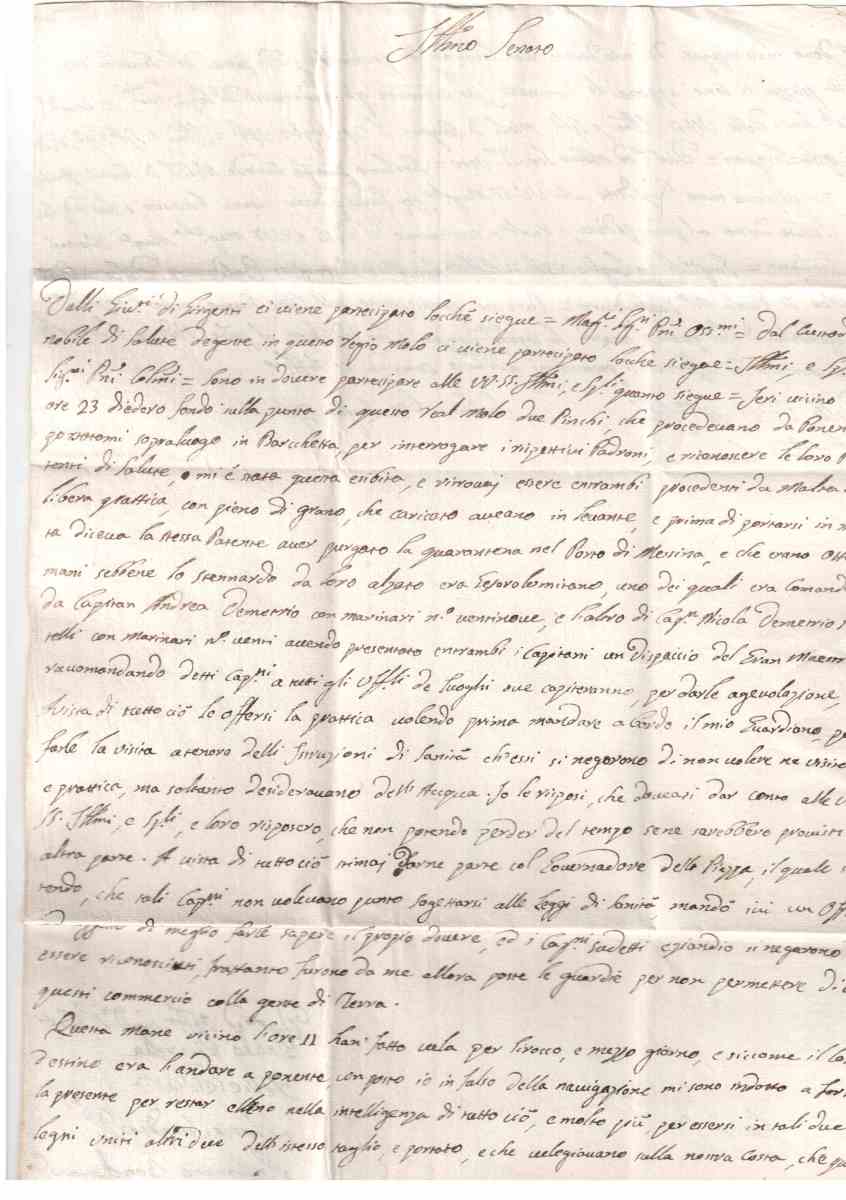 Ill.mo Senato
Dalli Giur.ti di Girgenti ci viene partecipato locchè siegue = Mag.ci Sig.ri P.ni Oss.mi = dal Custod
nobile di Salute degente in questo Regio Molo ci viene partecipato locche siegue = Ill.mi, e Sp.
Sig.ri P.ni Col.mi = Sono in dovere partecipare alle VV. SS. Ill.mi, e Sp.li quanto siegue = Jeri vicino
ore 23 diedero fondo sulla punta di questo Real Molo due Pinchi, che procedevano da Ponen
portatomi sopraluogo in Barchetta, per interrogare i rispettivi Padroni, e riconoscere le loro P
tenti di Salute, mi è stata questa esibita, e ritrovaj essere entrambi procedenti da Malta
libera prattica, con pieno di grano, che caricato aveano in Levante, e prima di portarsi in M
ta diceva la stessa Patente aver purgato la quarantena nel Porto di Messina, e che erano Otto
mani sebbene lo stennardo da loro alzato era Gerosolimitano, uno dei quali era Comand
da Capitan Andrea Demetrio con marinari n.o ventinove, e l'altro di Cap.n Nicola Demetrio
telli con marinari n.o venti avendo presentato entrambi i Capitani un Dispaccio del Gran Maem
racomandando detti Cap.ni a tutti gli Uff.li de luoghi ove capiteranno, per darle agevolazione,
A vista di tutto ciò le offersi la prattica volendo prima mandare a bordo il mio Guardiano, p
farle la visita a tenore delli Istruzioni di Sanità ch'essi si negorono di non volere ne visite
e prattica, ma soltanto desideravano dell'Acqua. Io le risposi, che doveasi dar conto alle V
SS. Ill.mi, e Sp.li, e loro risposero, che non potendo perder del tempo se ne sarebbero provisti
altra parte. A vista di tutto ciò stimaj darne parte col Governadore della Piazza, il quale
tendo, che tali Cap.ni non volevano punto sogettarsi alle Leggi di Sanità, mandò ivi un Off
di meglio farle sapere il proprio dovere, ed i Cap.ni sudetti eziandio si negorono
essere riconosciuti, frattanto furono da me allora poste le guardie per non permettere di
questi commercio colla gente di Terra.
Questa mane vicino l'ore 11 han' fatto vela per Sirocco, e mezzo giorno, e siccome il lo
destino era l'andare a ponente, con posto io in falso della navigazione mi sono indotto a for
la presente per restar elleno nella intelligenza di tutto ciò, e molto più, per essersi in tali due
legni uniti altri due dell'istesso taglio, e portato, e che velegiavano sulla nostra Costa, che